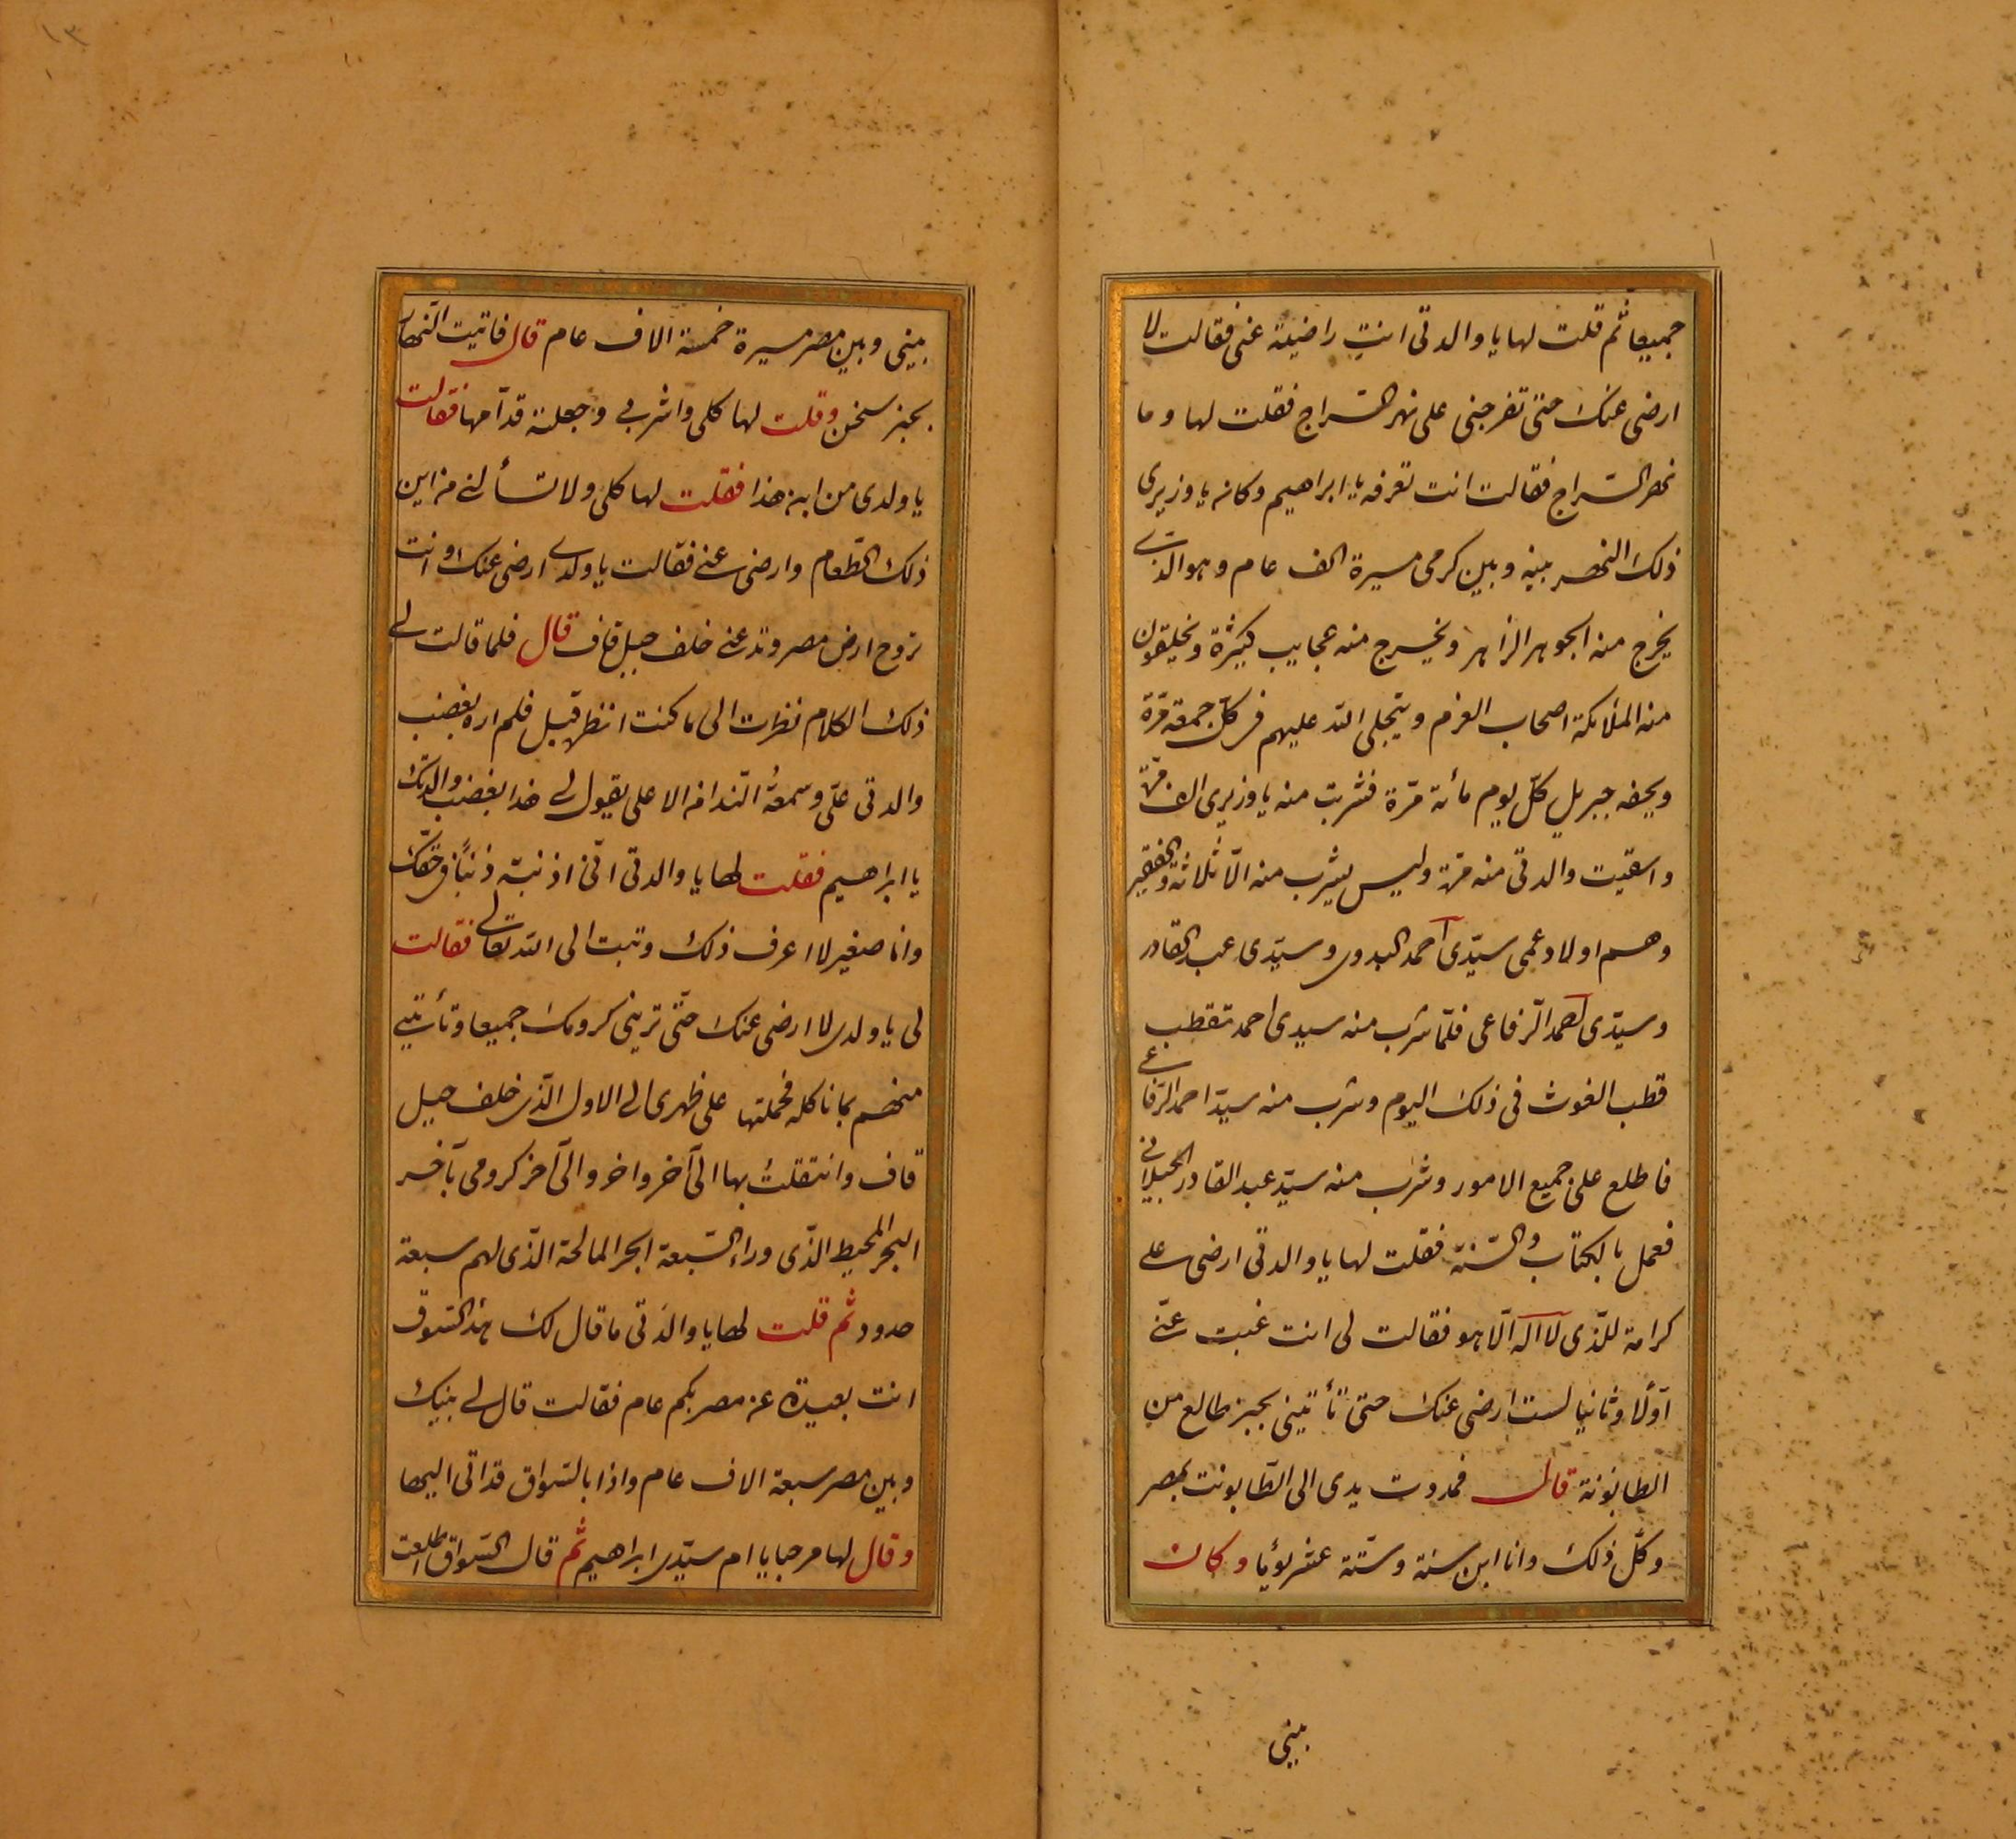 جميعا ثم قلت لها يا والدتى انتِ راضية عنى فقالت لا
ارضى عنك حتى تفرجنى على نهر السّراج فقلت لها وما
نهر السّراج فقالت انت تعرفه يا ابراهيم وكانه يا وزيرى
ذلك النهر بينه وبين كرمى مسيرة الف عام وهو الذى
يخرج منه الجوهر الزاهر ويخرج منه عجايب كثيرة ويخلقون
منه الملائكة اصحاب العزم ويتجلى الله عليهم فى كلّ جمعة مرّة
ويحفه جبريل كلّ يوم مائة مرّة فشربت منه يا وزيرى الف مرّة
واسقيت والدتى منه مرّة وليس يشرب منه الّا ثلاثة والفقير
وهم اولاد عمى سيّدى احمد البدوى وسيّدى عبد القادر
وسيّدى احمد الرّفاعى فلمّا شرب منه سيدى احمد تقطب
قطب الغوث فى ذلك اليوم وشرب منه سيّد احمد الرّفاعى
فاطلع على جميع الامور وشرب منه سيّد عبد القادر الجيلانى
فعمل بالكتاب والسّنة فقلت لها يا والدتى ارضى على
كرامة للّذى لا اله الّا هو فقالت لى انت غبت عنّى
اوّلا وثانيا لست ارضى عنك حتى تأتينى بخبز طالع من
الطابونة قال فمددت يدى الى الطّابونت بمصر
وكلّ ذلك وانا ابن سنة وستّة عشر يومًا وكان
بينى
بينى وبين مصر مسيرة خمسة الاف عام قال فاتيت اليها
بخبز سخن وقلت لها كلى واشربى وجعلته قدّامها فقالت
يا ولدى من اين هذا فقلت لها كلى ولا تسألنى من اين
ذلك الطّعام وارضى عنى فقالت يا ولدى ارضى عنك وانت
تروح ارض مصر وتدعنى خلف جبل قاف قال فلما قالت لى
ذلك الكلام نظرت الى ما كنت انظر قبل فلم اره بغضب
والدتى علّى وسمعتُ النّدا من الاعلى يقول لى هذا بغضب والدتك
يا ابراهيم فقلت لها يا والدتى انّى اذنبت ذنبًا فى حقّك
وانا صغير لا اعرف ذلك وتبت الى الله تعالى فقالت
لى يا ولدى لا ارضى عنك حتّى ترينى كرومك جميعا وتأتينى
منهم بما ناكله فحملتها على ظهرى الى الاول الّذى خلف جبل
قاف وانتقلت بها الى آخر واخر والى آخر كرومى بآخر
البحر المحيط الذّى وراء السّبعة ابحر المالحة الذّى لهم سبعة
حدود ثم قلت لها يا والدتى ما قال لك هذا السّواق
انت بعيدة عن مصر بكم عام فقالت قال لى بينك
وبين مصر سبعة الاف عام واذا بالسّواق قد اتى اليها
وقال لها مرحبا يا ام سيّدى ابراهيم ثم قال السّواق اطلعت